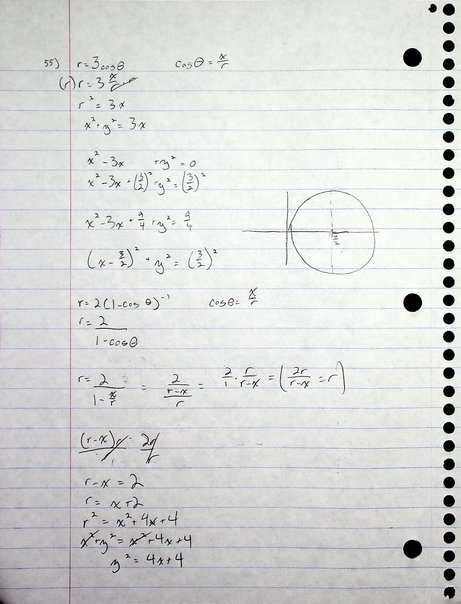 55) r = 3cosθ    cosθ = x/r
(r) r = 3 x/r
r² = 3x
x² + y² = 3x
x² - 3x + y² = 0
x² - 3x + (3/2)² + y² = (3/2)²
x² - 3x + 9/4 + y² = 9/4
(x - 3/2)² + y² = (3/2)²
3/2
r = 2(1-cos θ)⁻¹    cosθ = x/r
r = 2/(1-cosθ)
r = 2/(1 - x/r) = 2/((r-x)/r) = 2/1 · r/(r-x) = (2r/(r-x) = r)
(r-x)r = 2r/r
r-x = 2
r = x+2
r² = x² + 4x + 4
x² + y² = x² + 4x + 4
y² = 4x + 4